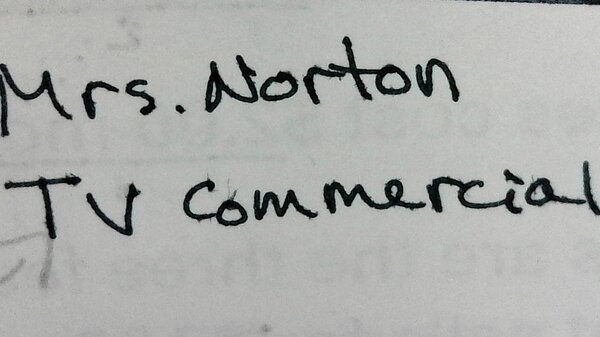 Mrs. Norton
TV Commercial